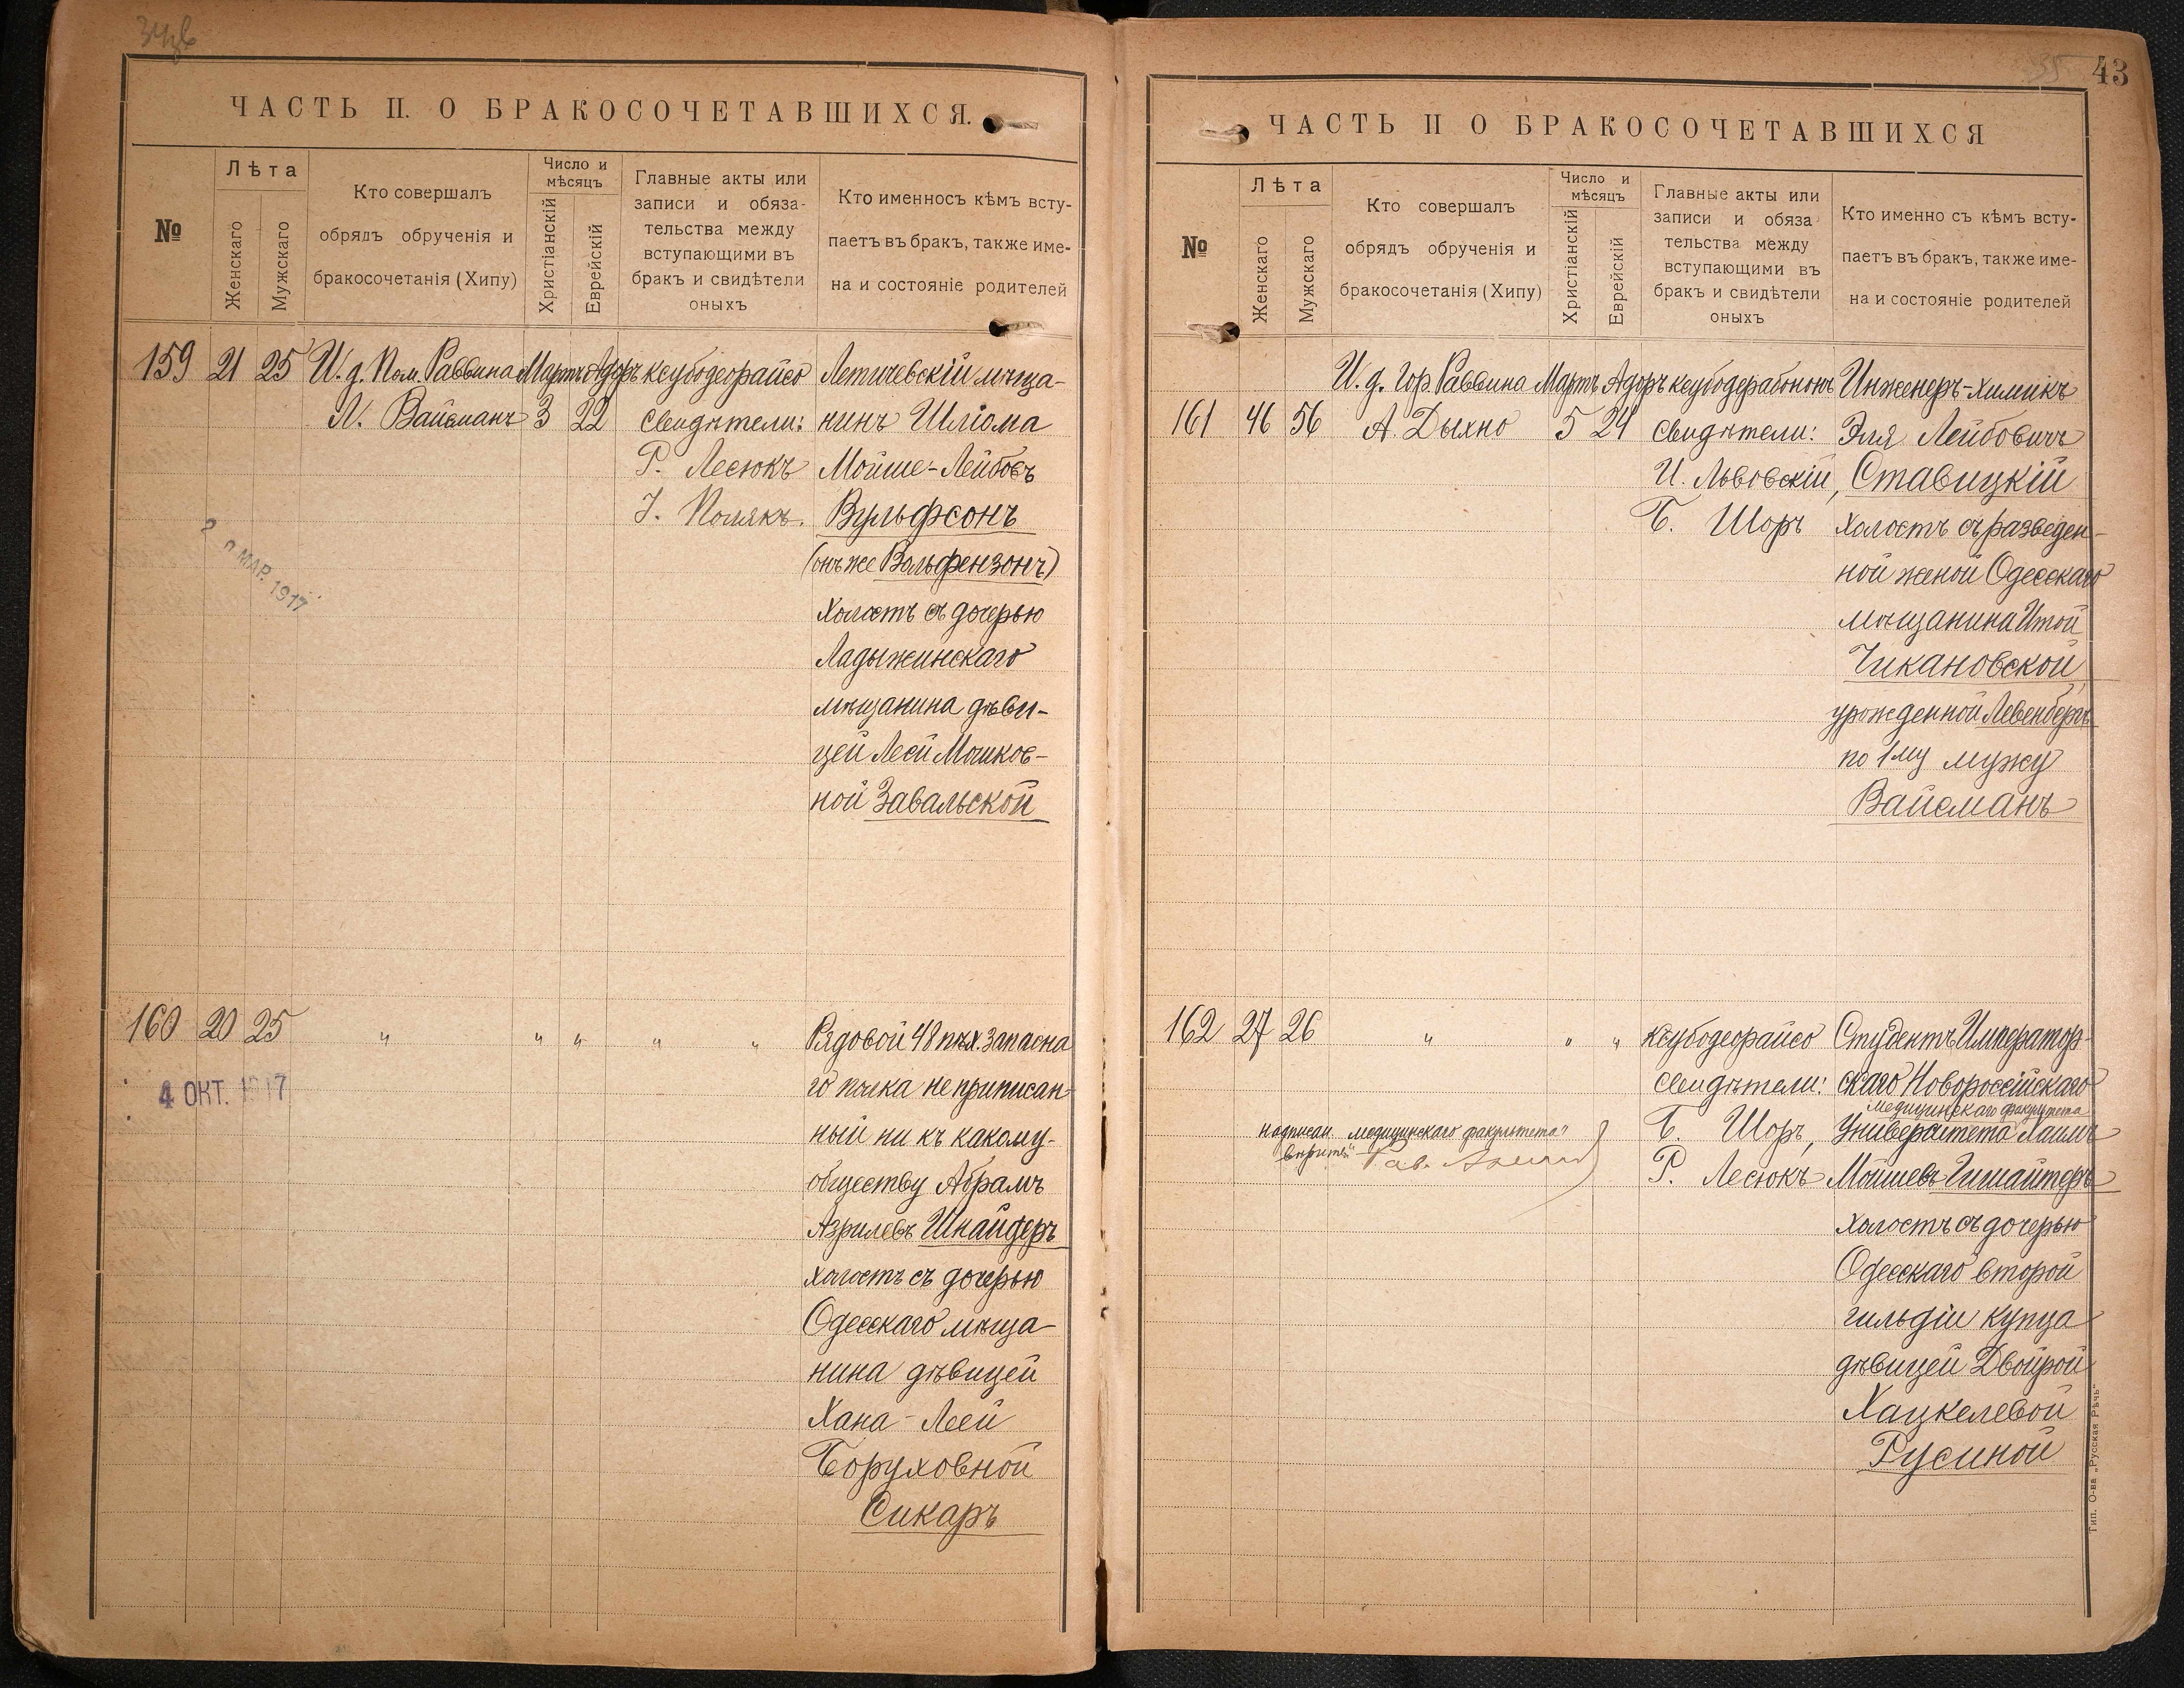 ЧАСТЬ П. О БРАКОСОЧЕТАВШИХСЯ.
№
Лѣта
Женскаго
Мужскаго
Кто совершалъ
обрядъ обрученія и
бракосочетанія (Хипу)
Число и
мѣсяцъ
Христіанскій
Еврейскій
Главные акты или
записи и обяза-
тельства между
вступающими въ
бракъ и свидѣтели
оныхъ
Кто именносъ кѣмъ всту-
паетъ въ бракъ, также име-
на и состояніе родителей
159 21 25 И. д. Пом. Раввина Мартъ Адоръ ксубодеорайсо Летичевскій мѣща-
Л. Вайсманъ 3 22 свидѣтели: нинъ Шліома
Р. Лесюкъ Мойше-Лейбовъ
І. Полякъ. Вульфсонъ
(онъ же Вольфензонъ)
холостъ съ дочерью
Ладыжинскаго
мѣщанина дѣви-
цей Леей Мошков-
ной Завальской
МАР. 1917
160 20 25 " " " " " Рядовой 48 пѣх. запасна
го полка не приписан-
ный ни къ какому-
обществу Абрамъ
Азрилевъ Шнайдеръ
холостъ съ дочерью
Одесскаго мѣща-
нина дѣвицей
Хана-Леей
Боруховной
Сикаръ
4 ОКТ. 1917
43
35
ЧАСТЬ П О БРАКОСОЧЕТАВШИХСЯ
№
Лѣта
Женскаго
Мужскаго
Кто совершалъ
обрядъ обрученія и
бракосочетанія (Хипу)
Число и
мѣсяцъ
Христіанскій
Еврейскій
Главные акты или
записи и обяза
тельства между
вступающими въ
бракъ и свидѣтели
оныхъ
Кто именно съ кѣмъ всту-
паетъ въ бракъ, также име-
на и состояніе родителей
И. д. Гор. Раввина Мартъ Адоръ ксубодерабононъ Инженеръ-химикъ
161 46 56 А. Дыхно 5 24 свидѣтели: Эля Лейбовичъ
И. Львовскій, Ставицкій
Б. Шоръ холостъ съ разведен-
ной женой Одесскаго
мѣщанина Итой
Чикановской,
урожденной Левенбергъ
по 1му мужу
Вайсманъ
162 27 26 " " " ксубодеорайсо Студентъ Император-
свидѣтели: скаго Новороссійскаго
медицинскаго факультета
Б. Шоръ, Университета Хаимъ
Р. Лесюкъ Мойшевъ Гишайтеръ
надписан. „медицинскаго факультета"
холостъ съ дочерью
Одесскаго второй
гильдіи купца
дѣвицей Двойрой
Хацкелевой
Русиной
Тип. О-ва „Русская Рѣчь"